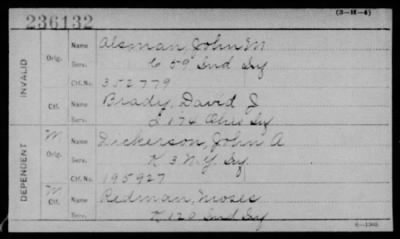 (3-H-4)
236132
INVALID
Orig. Name Alsman, John M
Serv. C 59" Ind Inf
Ctf. No. 352779
Ctf. Name Brady, David J
Serv. 174 Ohio Inf
DEPENDENT
M Orig. Name Dickerson, John A
Serv. K 3 N.Y. Inf
Ctf. No. 195927
M Ctf. Name Redman, Moses
Serv. K 120 Ind Inf